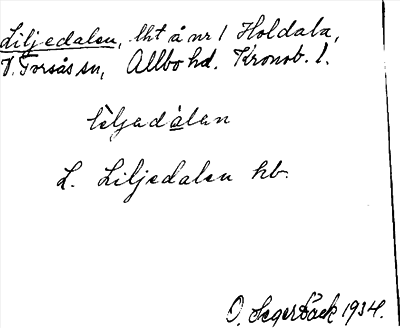 Liljedalen, lht å nr 1 Holdala,
V. Torsås sn, Allbo hd. Kronob. l.
lìljadálan
L. Liljedalen hb.
O. Segerbäck 1934.